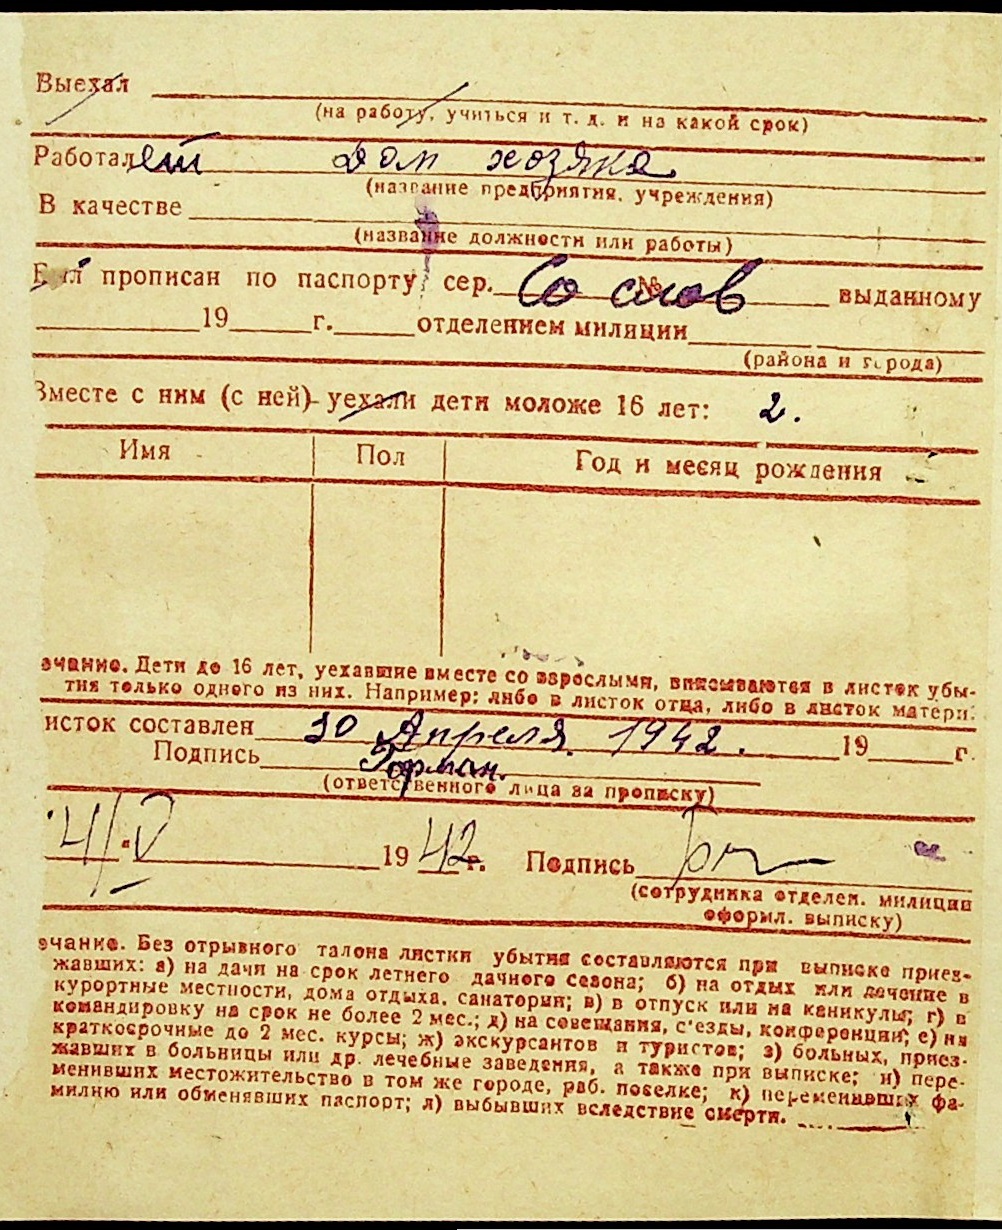 Выехал
(на работу, учиться и т. д. и на какой срок)
Работает Дом хозяка
(название предприятия, учреждения)
В качестве
(название должности или работы)
Был прописан по паспорту сер. Со слов выданному
19 г. отделением милиции
(района и города)
Вместе с ним (с ней) уехали дети моложе 16 лет: 2.
Имя Пол Год и месяц рождения
ечание. Дети до 16 лет, уехавшие вместе со взрослыми, вписываются в листок убы-
тия только одного из них. Например: либо в листок отца, либо в листок матери.
исток составлен 30 Апреля 1942. 19 г.
Подпись
(ответственного лица за прописку)
4/V 1942 г. Подпись
(сотрудника отделен. милиции
оформл. выписку)
ечание. Без отрывного талона листки убытия составляются при выписке приез-
жавших: а) на дачи на срок летнего дачного сезона; б) на отдых или лечение в
курортные местности, дома отдыха, санатории; в) в отпуск или на каникулы; г) в
командировку на срок не более 2 мес.; д) на совещания, с'езды, конференции; е) на
краткосрочные до 2 мес. курсы; ж) экскурсантов и туристов; з) больных, приез-
жавших в больницы или др. лечебные заведения, а также при выписке; и) пере-
менивших местожительство в том же городе, раб. поселке; к) переменивших фа-
милию или обменявших паспорт; л) выбывших вследствие смерти.